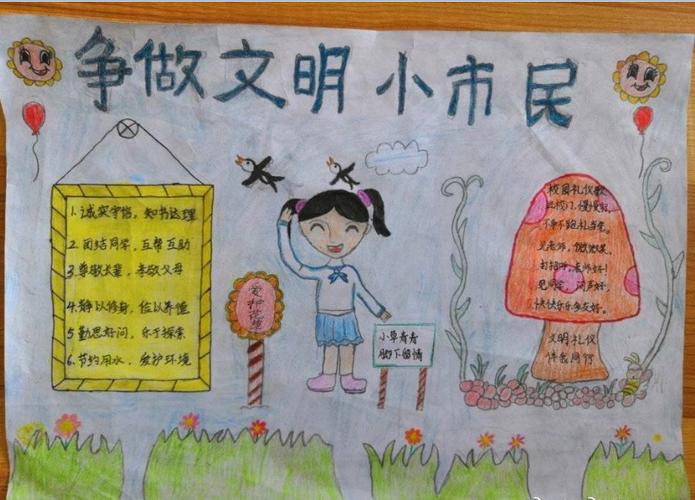 争做文明小市民
1. 诚实守信，知书达理
2. 团结同学，互帮互助
3 尊敬长辈，孝敬父母
4. 静以修身，俭以养德
5 勤思好问，乐于探索
6. 节约用水，爱护环境
爱护花草
小草青青
脚下留情
校园礼仪歌
进校门，慢慢行，
不争不跑礼当先。
见老师，微微笑，
打招呼，老师好！
见同学，问声好，
快快乐乐多友好。
文明礼仪
伴我同行